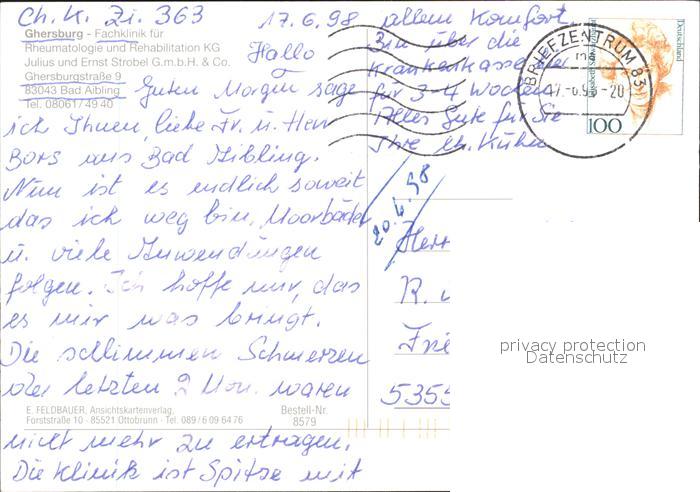 Ch. K. Zi. 363
Ghersburg - Fachklinik für
Rheumatologie und Rehabilitation KG
Julius und Ernst Strobel G.m.b.H. & Co.
Ghersburgstraße 9
83043 Bad Aibling
Tel. 08061/4940
17.6.98
Hallo
Guten Morgen sage
ich Ihnen, liebe Fr. u. Herr
Bors aus Bad Aibling.
Nun ist es endlich soweit
das ich weg bin, Moorbäder
u. viele Anwendungen
folgen. Ich hoffe nur, das
es mir was bringt.
Die schlimmen Schmerzen
der letzten 2 Mon. waren
E. FELDBAUER, Ansichtskartenverlag,
Forststraße 10 - 85521 Ottobrunn · Tel. 089/6 09 64 76
Bestell-Nr.
8579
nicht mehr zu ertragen.
Die Klinik ist Spitze mit
allem Komfort.
Bin über die
Krankenkasse hier
für 3-4 Wochen
Alles Gute für Sie
Ihre Ch. Kühn
20.6.98
BRIEFZENTRUM 83
-20
Deutschland
100
Herr
R.
Frie
5355
privacy protection
Datenschutz